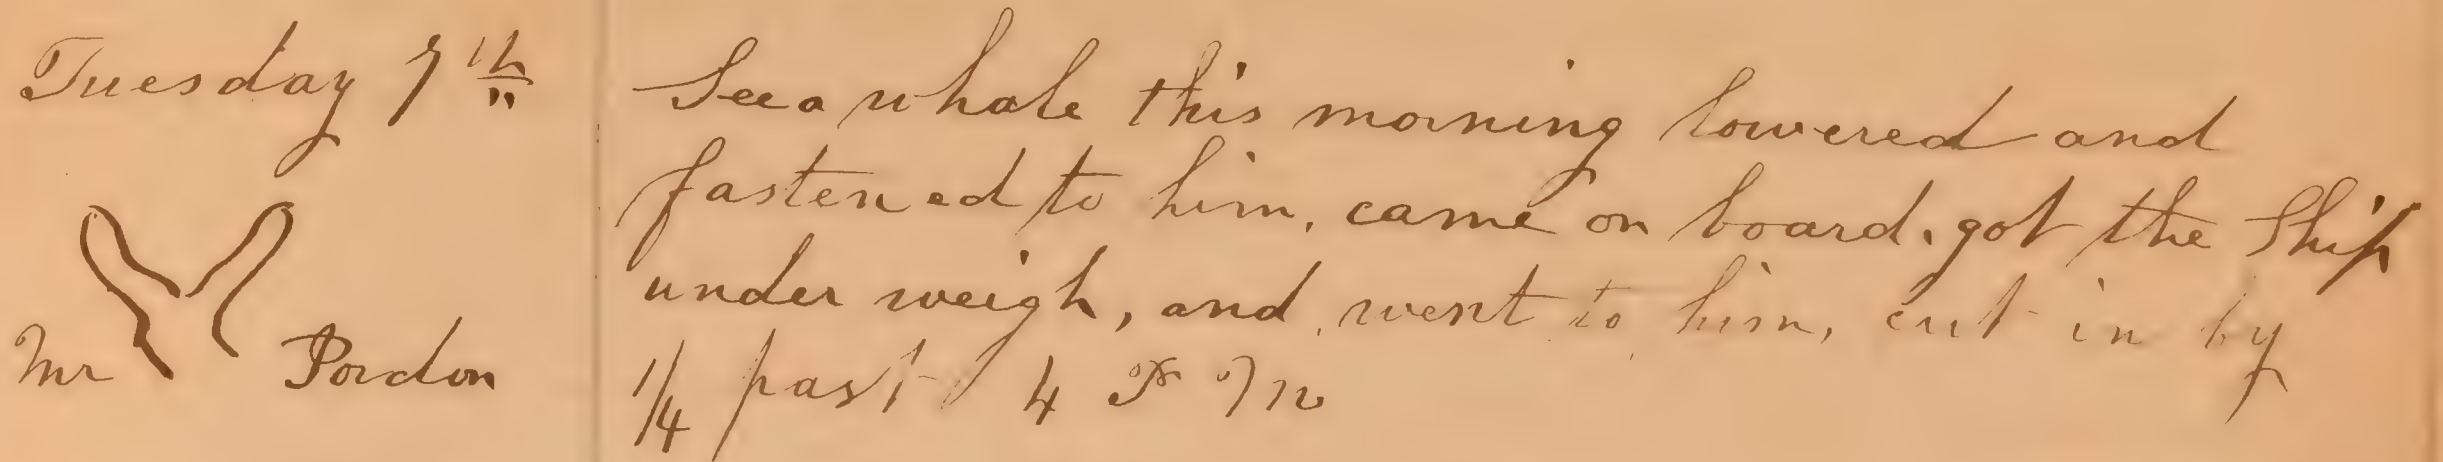 Tuesday 7th
See a whale this morning lowered and
fastened to him, came on board, got the Ship
under weigh, and went to him, cut in by
1/4 past 4 P m
Mr Pordon